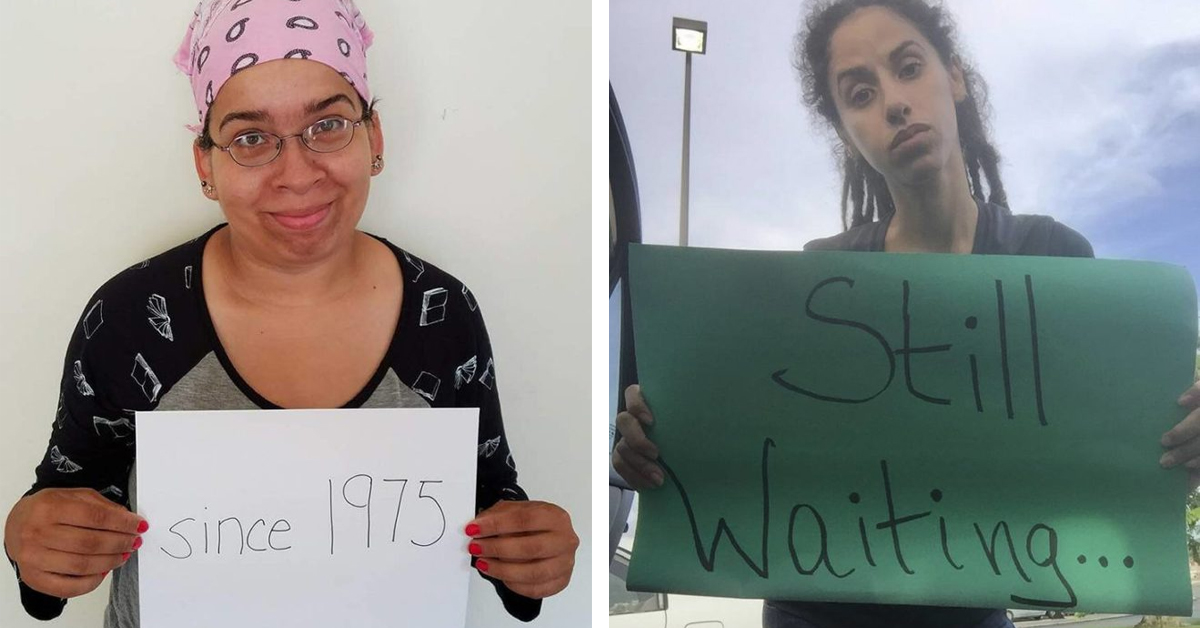 since 1975
Still
Waiting...